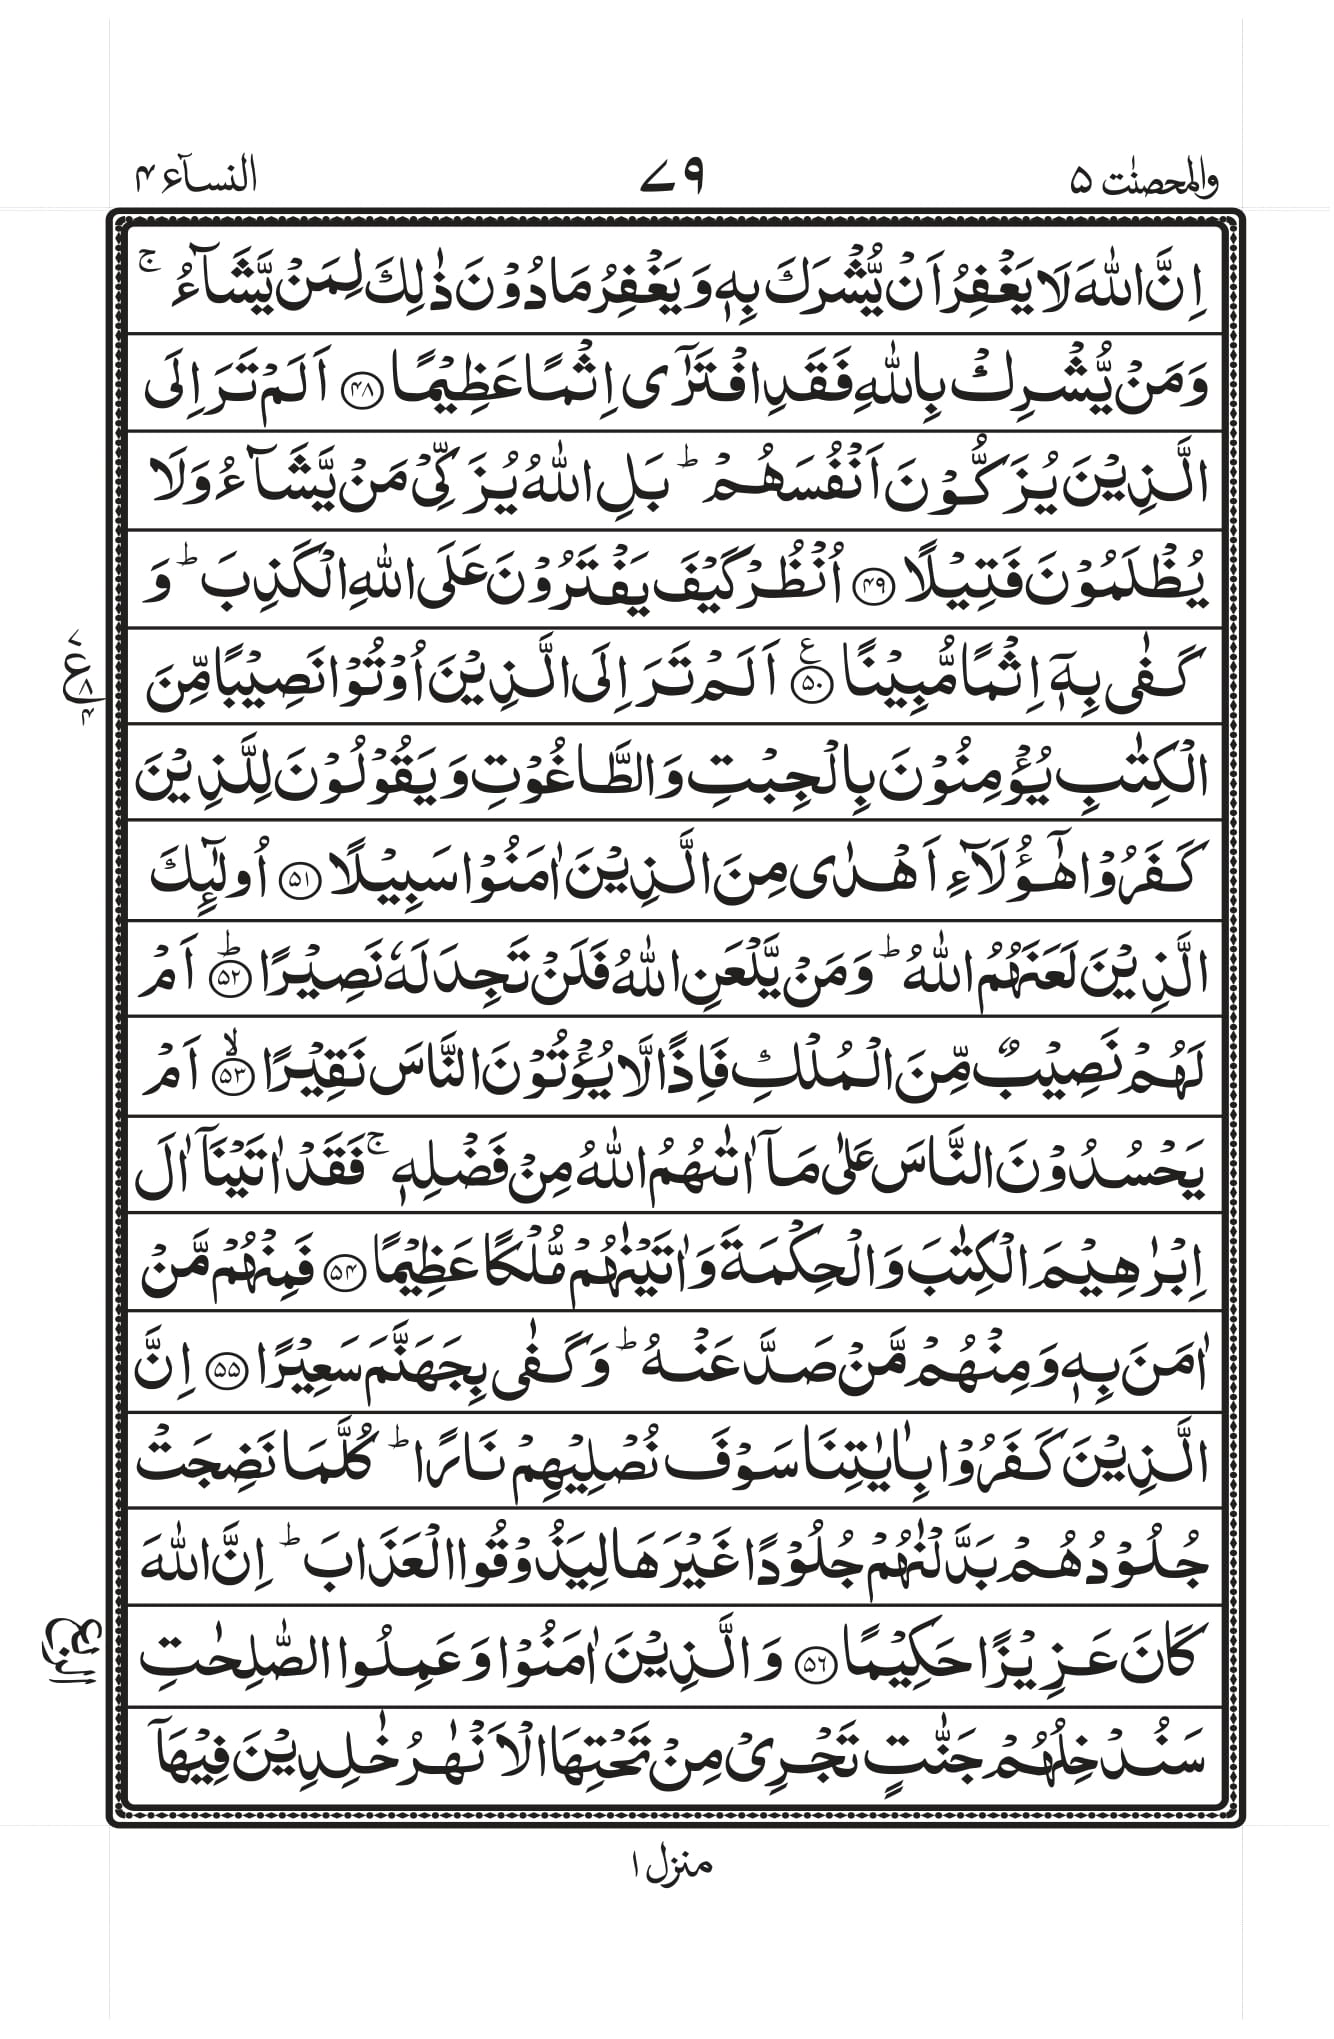 والمحصنٰت ۵
۷۹
النسآء ۴
اِنَّ اللّٰهَ لَا يَغْفِرُ اَنْ يُّشْرَكَ بِهٖ وَيَغْفِرُ مَا دُوْنَ ذٰلِكَ لِمَنْ يَّشَآءُ ۚ
وَمَنْ يُّشْرِكْ بِاللّٰهِ فَقَدِ افْتَرٰٓى اِثْمًا عَظِيْمًا ﴿۴۸﴾ اَلَمْ تَرَ اِلَى
الَّذِيْنَ يُزَكُّوْنَ اَنْفُسَهُمْ ؕ بَلِ اللّٰهُ يُزَكِّىْ مَنْ يَّشَآءُ وَلَا
يُظْلَمُوْنَ فَتِيْلًا ﴿۴۹﴾ اُنْظُرْ كَيْفَ يَفْتَرُوْنَ عَلَى اللّٰهِ الْكَذِبَ ؕ وَ
كَفٰى بِهٖٓ اِثْمًا مُّبِيْنًا ﴿۵۰﴾ ع اَلَمْ تَرَ اِلَى الَّذِيْنَ اُوْتُوْا نَصِيْبًا مِّنَ
ع ۸ ۴
الْكِتٰبِ يُؤْمِنُوْنَ بِالْجِبْتِ وَالطَّاغُوْتِ وَيَقُوْلُوْنَ لِلَّذِيْنَ
كَفَرُوْا هٰٓؤُلَآءِ اَهْدٰى مِنَ الَّذِيْنَ اٰمَنُوْا سَبِيْلًا ﴿۵۱﴾ اُولٰٓئِكَ
الَّذِيْنَ لَعَنَهُمُ اللّٰهُ ؕ وَمَنْ يَّلْعَنِ اللّٰهُ فَلَنْ تَجِدَ لَهٗ نَصِيْرًا ﴿۵۲﴾ؕ اَمْ
لَهُمْ نَصِيْبٌ مِّنَ الْمُلْكِ فَاِذًا لَّا يُؤْتُوْنَ النَّاسَ نَقِيْرًا ﴿۵۳﴾ۙ اَمْ
يَحْسُدُوْنَ النَّاسَ عَلٰى مَآ اٰتٰىهُمُ اللّٰهُ مِنْ فَضْلِهٖ ۚ فَقَدْ اٰتَيْنَآ اٰلَ
اِبْرٰهِيْمَ الْكِتٰبَ وَالْحِكْمَةَ وَاٰتَيْنٰهُمْ مُّلْكًا عَظِيْمًا ﴿۵۴﴾ فَمِنْهُمْ مَّنْ
اٰمَنَ بِهٖ وَمِنْهُمْ مَّنْ صَدَّ عَنْهُ ؕ وَكَفٰى بِجَهَنَّمَ سَعِيْرًا ﴿۵۵﴾ اِنَّ
الَّذِيْنَ كَفَرُوْا بِاٰيٰتِنَا سَوْفَ نُصْلِيْهِمْ نَارًا ؕ كُلَّمَا نَضِجَتْ
جُلُوْدُهُمْ بَدَّلْنٰهُمْ جُلُوْدًا غَيْرَهَا لِيَذُوْقُوا الْعَذَابَ ؕ اِنَّ اللّٰهَ
كَانَ عَزِيْزًا حَكِيْمًا ﴿۵۶﴾ وَالَّذِيْنَ اٰمَنُوْا وَعَمِلُوا الصّٰلِحٰتِ
سَنُدْخِلُهُمْ جَنّٰتٍ تَجْرِىْ مِنْ تَحْتِهَا الْاَنْهٰرُ خٰلِدِيْنَ فِيْهَآ
منزل ۱